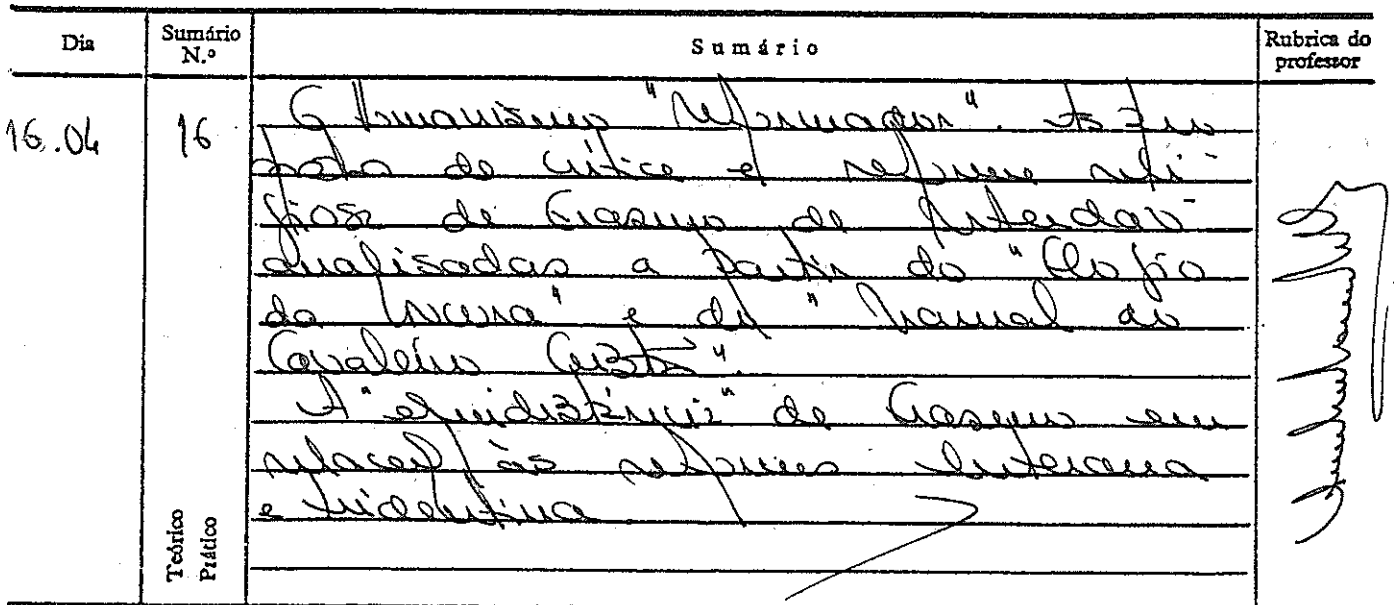 Dia
Sumário N.º
Sumário
Rubrica do professor
16.04
16
O Humanismo "Reformador". As
de crítica e reforma reli-
giosa de Erasmo de Roterdão
analisadas a partir do "Elogio
da Loucura" e do "Manual do
Cavaleiro Cristão".
A "equidistância" de Erasmo em
relação às reformas luterana
e tridentina
Teórico
Prático